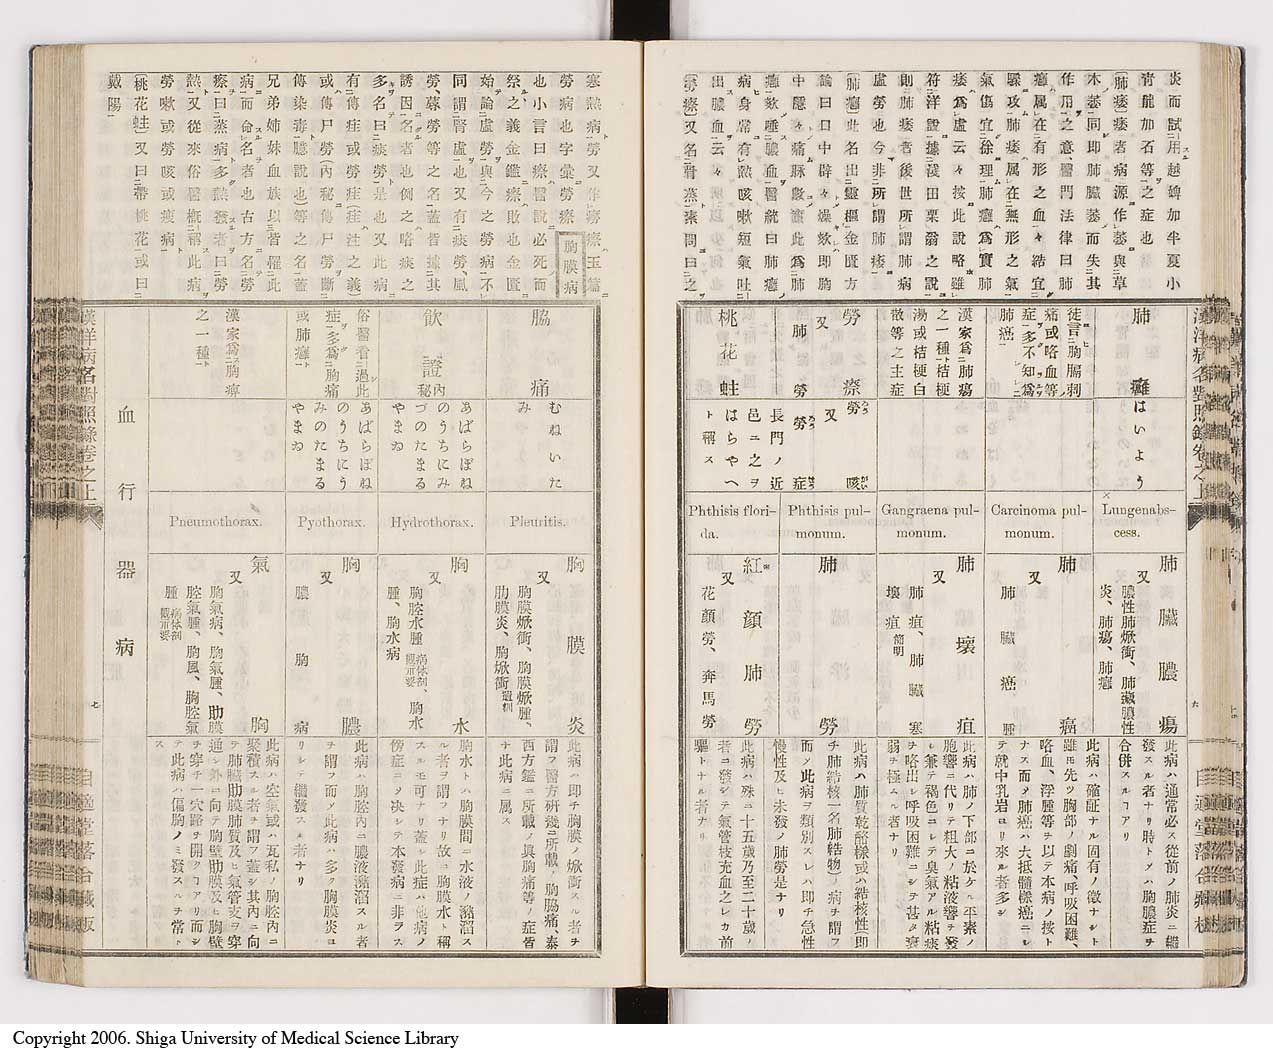 炎而試用越婢加半夏小
青龍加石等之症也
(肺痿)痿者病源作萎與草
木萎同即肺臟萎而失其
作用之意、醫門法律曰肺
癰属在有形之血々結宜
驟攻肺痿属在無形之氣
氣傷宜徐理肺癰爲實肺
痿爲虛云々按此說略雖
符洋說據淺田栗翁之說
則肺痿者後世所謂肺病
虛勞也今非所謂肺痿
(肺癰)此名出靈樞金匱方
論曰口中辟々燥欬即胸
中隱々痛脉數實此爲肺
癰欬唾膿血醫統曰肺癰
病身常有熱咳嗽短氣吐
出膿血云々
(勞瘵)又名骨蒸素問曰之
漢洋病名對照錄卷之上
六
自適堂落合藏版
肺癰
はいよう
Lungenabs-
cess.
肺臟膿瘍
又 膿性肺焮衝、肺臟膿性
炎、肺瘍、肺癰
此病ハ通常必ス從前ノ肺炎ニ繼
發スル者ナリ時トメハ胸膿症ヲ
合併スルコアリ
徒言胸膈弱
痛或咯血等
症多不知爲
肺癌
Carcinoma pul-
monum.
肺癌
又 肺臟癌腫
此病ハ確証ナル固有ノ徵ナシト
雖モ先ツ胸部ノ劇痛、呼吸困難、
咯血、浮腫等ヲ以テ本病ノ按ト
ナス而メ肺癌ハ大抵髓樣癌ニシ
テ就中乳岩ヨリ來ル者多シ
漢家爲肺瘍
之一種桔梗
湯或桔梗白
散等之主症
Gangraena pul-
monum.
肺壞疽
又 肺疽、肺臟塞
壞疽簡明
此病ハ肺ノ下部ニ於ケル平素ノ
胞響ニ代リテ粗大ノ粘液響ヲ發
シ兼テ褐色ニシテ臭氣アル粘痰
ヲ咯出シ呼吸困難ニシテ甚タ衰
弱ヲ極ムル者ナリ
勞瘵
又 肺勞
勞咳
又 勞症
Phthisis pul-
monum.
肺勞
此病ハ肺質乾酪樣或ハ結核性(即
チ肺結核一名肺牲物)ノ病ヲ謂フ
而メ此病ヲ類別スレハ即チ急性
慢性及ヒ未發ノ肺勞是ナリ
桃花蛀
長門ノ近
邑ニ之ヲ
はらやへ
ト稱ス
Phthisis flori-
da.
紅顏肺勞
又 花顏勞、奔馬勞
此病ハ殊ニ十五歲乃至二十歲ノ
者ニ發シテ氣管枝充血之レカ前
驅トナル者ナリ
寒熱病勞又作瘵玉篇
勞病也字彙勞瘵
也小言曰瘵醫說必死而
祭之義金鑑瘵敗也金匱
始論虛勞與今之勞病不
同謂腎虛也又有痰勞、風
勞、蓐勞等之名蓋皆據其
誘因名者也例之咯痰之
多名曰痰勞是也又此病
有傳疰或勞疰(疰注之義)
或傳尸勞(內秘傳尸勞斷
傳染毒臆說也)等之名蓋
兄弟姉妹血族以皆罹此
病而命名者也古方名勞
瘵曰蒸病多熱發者曰勞
熱又從來俗醫概稱此病
勞嗽或勞咳或痩病
(桃花蛀)又曰帶桃花或曰
戴陽
胸膜病
脇痛
むねいた
み
Pleuritis.
胸膜炎
又 胸膜焮衝、胸膜焮腫、
肋膜炎、胸焮衝
此病ハ即チ胸膜ノ焮衝スル者ヲ
謂フ醫方硏幾ニ所載ノ胸脇痛、泰
西方鑑ニ所載ノ眞胸痛等ノ症皆
ナ此病ニ属ス
飲證內秘
あばらぼね
のうちにみ
づのたまる
やまゐ
Hydrothorax.
胸水
又 胸腔水腫、胸水
腫、胸水病
胸水トハ胸膜間ニ水液ノ瀦溜ス
ル者ヲ謂フナリ故ニ胸膜水ト稱
スルモ可ナリ蓋シ此症ハ他病ノ
傍症ニメ决シテ本發病ニ非ラス
俗醫看過此
症多爲胸痛
或肺癰
あばらぼね
のうちにう
みのたまる
やまゐ
Pyothorax.
胸膿
又 膿胸病
此病ハ胸腔內ニ膿液瀦溜スル者
ヲ謂フ而メ此病ハ多ク胸膜炎ヨ
リシテ繼發スル者ナリ
漢家爲胸痺
之一種
Pneumothorax.
氣胸
又 胸氣病、胸氣腫、肋膜
腔氣腫、胸風、胸腔氣
腫
此病ハ空氣或ハ瓦私ノ胸腔內ニ
聚積スル者ヲ謂フ蓋シ其內ニ向
テ肺臟肋膜肺質及ヒ氣管支ヲ穿
通シ外ニ向テ胸壁肋膜及ヒ胸壁
ヲ穿チ一穴路ヲ開クコアリ而シ
テ此病ハ偏胸ノミ發スルヲ常ト
ス
血行器病
漢洋病名對照錄卷之上
七
自適堂落合藏版
Copyright 2006. Shiga University of Medical Science Library